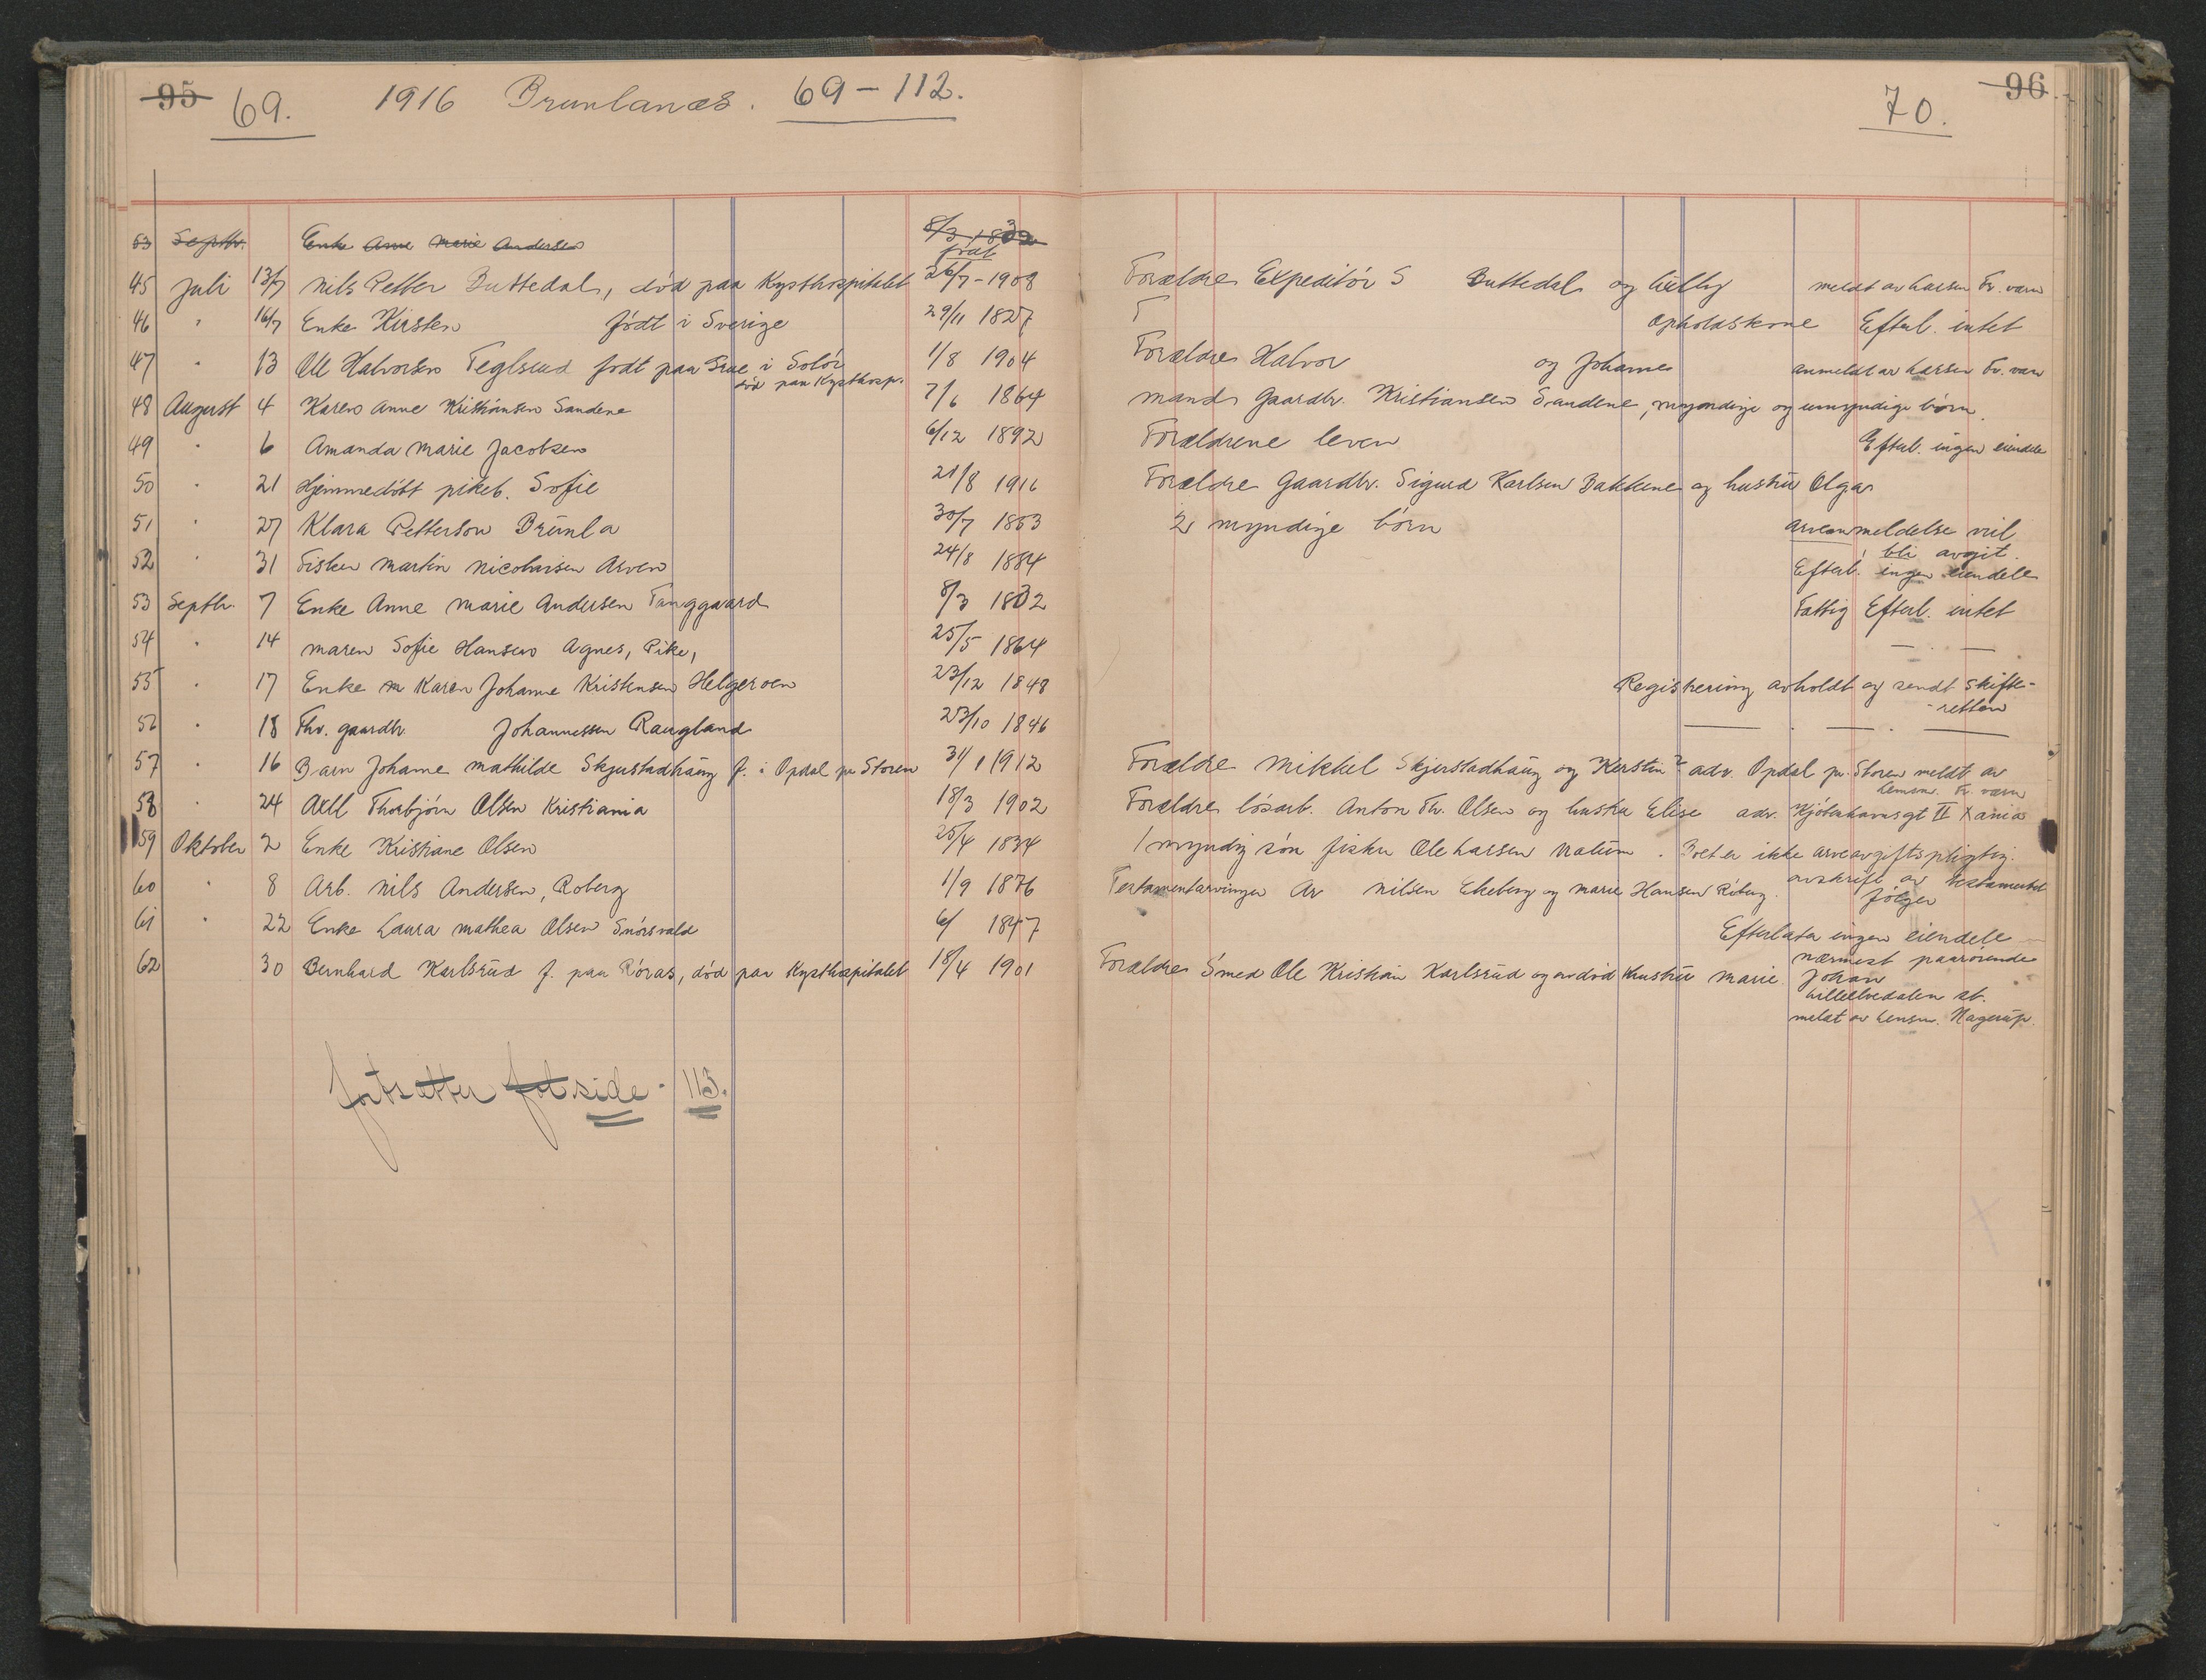 95 69. 1916 Brunlanæs. 69-112. 70. 96
53 Septbr. Enke Anne Marie Andersen 8/3 1832
født
45 Juli 13/7 Nils Petter Buttedal, død paa Kysthospitalet 26/7-1908 Forældre Expeditør S Buttedal og Willy meldt av Larsen Fr.værn
46 " 16/7 Enke Kirsten født i Sverige 29/11 1827 Opholdskone Efterl. intet
47 " 13 Ole Halvorsen Teglsud født paa Grue i Solør 1/8 1904 Forældre Halvor og Johanne anmeldt av Larsen Fr. værn
død paa Kysthosp.
48 August 4 Karen Anne Kristiansen Sandene 7/6 1864 Mand Gaardbr. Kristiansen Sandene, myndige og umyndige børn.
49 " 6 Amanda Marie Jacobsen 6/12 1892 Forældrene lever Efterl. ingen eiendele
50 " 21 Hjemmedøbt pikeb. Sofie 21/8 1916 Forældre Gaardbr. Sigurd Karlsen Bakkene og hustru Olga
51 " 27 Klara Petterson Brunla 30/7 1853 2 myndige børn arveanmeldelse vil
bli avgit.
52 " 31 Fisker Martin Nicolaisen Arven 24/8 1884 Efterl. ingen eiendele
53 Septbr. 7 Enke Anne Marie Andersen Fanggaard 8/3 1832 Fattig Efterl. intet
54 " 14 Maren Sofie Hansen Agnes, Pike, 25/5 1864 — " —
55 " 17 Enke Karen Johanne Kristensen Helgeroen 23/12 1848 Registrering avholdt og sendt Skifte-
retten
56 " 18 Fhv. gaardbr. Johannessen Raugland 23/10 1846 — " — " —
57 " 16 Barn Johanne Mathilde Skjerstadhaug f. i Opdal pr Støren 31/1 1912 Forældre Mikkel Skjerstadhaug og Kerstin adr. Opdal pr. Støren meldt av
Lensm. Fr. værn
58 " 24 Axel Thorbjørn Olsen Kristiania 18/3 1902 Forældre løsarb. Anton Th. Olsen og hustru Elise adr. Kjøbenhavnsgt II Xania
59 Oktober 2 Enke Kristiane Olsen 25/4 1834 1 myndig søn fisker Ole Larsen Nalum. Boet er ikke arveavgiftspligtig.
60 " 8 Arb. Nils Andersen, Roberg 1/9 1876 Testamentarvinger Ar Nilsen Ekeberg og Marie Hansen Roberg. avskrift av testamentet
følger
61 " 22 Enke Laura Mathea Olsen Snørsvald 6/ 1847 Efterlater ingen eiendele
62 30 Bernhard Karlsrud f. paa Røras, død paa Kysthospitalet 18/4 1901 Forældre Smed Ole Kristian Karlsrud og avdød hustru Marie. nærmest paarørende
Johan
Lilleelvedalen st.
meldt av Lensm. Nagerup.
fortsætter fol side 113.